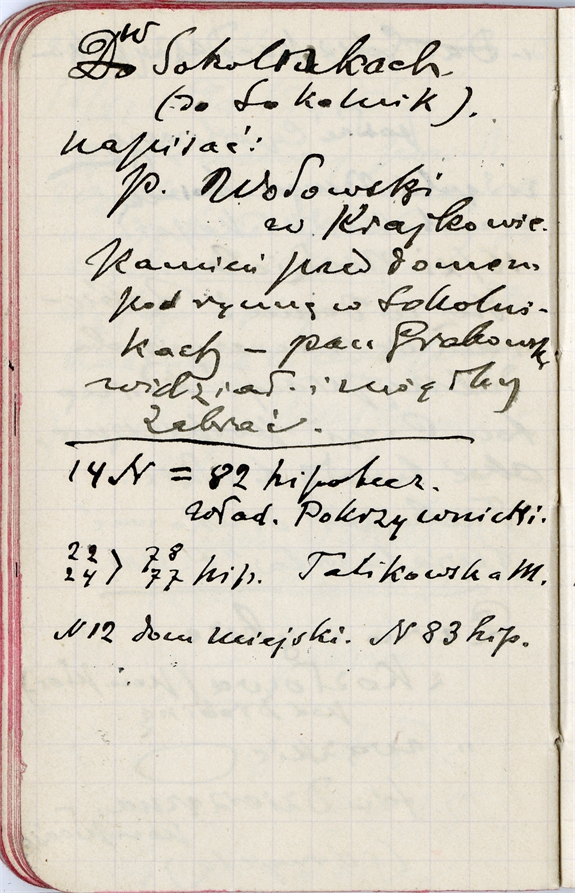 w
Do Sokolnikach
(do Sokolnik).
napisać:
p. Wodowski
w Krajkowie.
Kamień przed domem
pod rynną w Sokolni-
kach – pan Grabowski
widział i mógłby
zabrać.
14 N = 82 hipotecz.
Wład. Pokrzywnicki.
22 24 > 78 77 hip. Talikowska M.
N 12 dom miejski. N 83 hip.